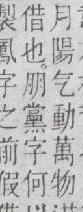 月陽气動萬物
借也。朋黨字何
製鳳字之前假